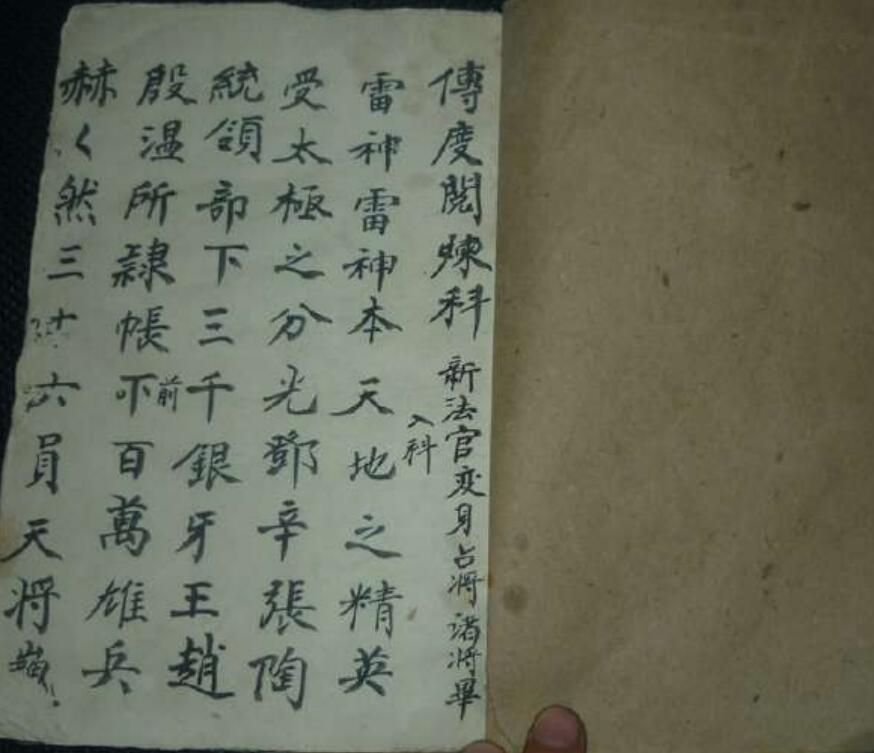 傳度閱煉科 新法官变身占将 诸将畢
入科
雷神雷神本天地之精英
受太極之分光鄧辛張陶
統領部下三千銀牙王趙
殷温所隷帳前吓百萬雄兵
赫々然三十六員天将